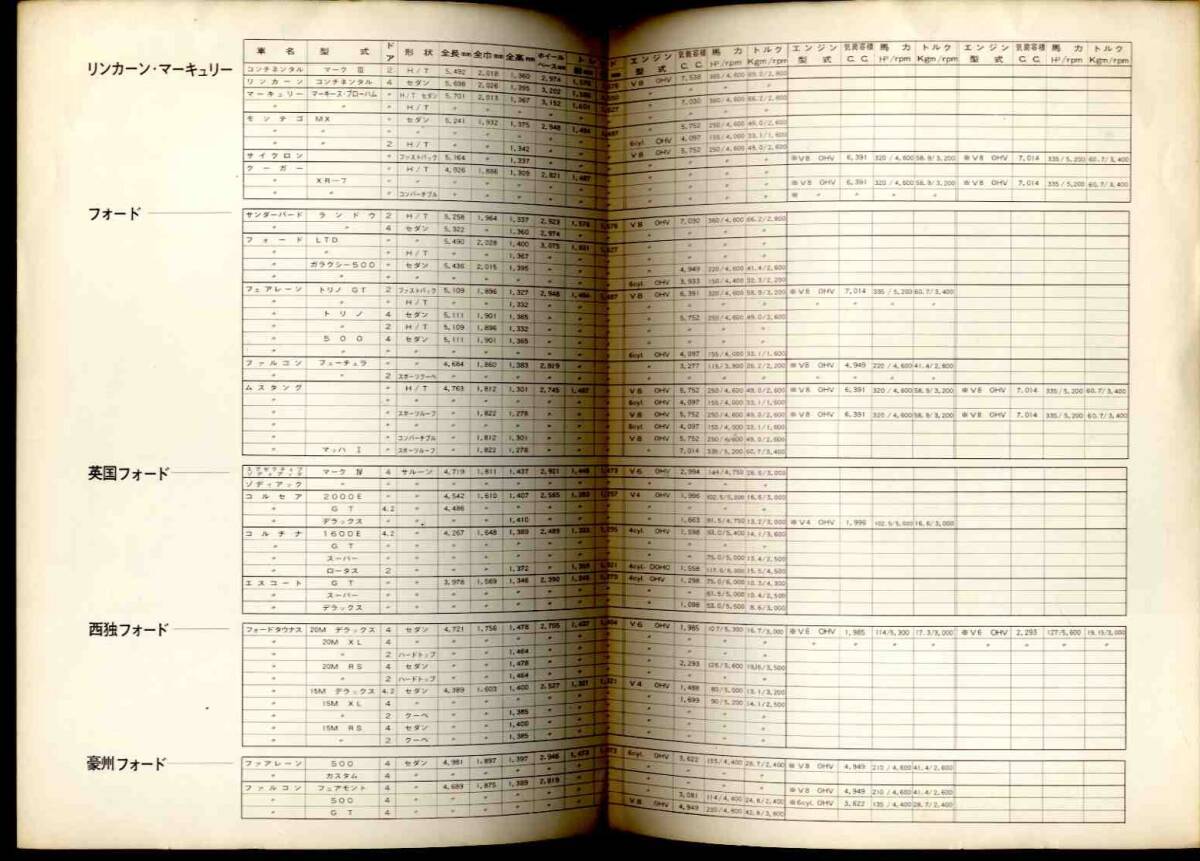 車名 型式 ドア 形状 全長mm 全巾mm 全高mm ホイールベースmm エンジン型式 気筒容積C.C. 馬力HP/rpm トルクKgm/rpm エンジン型式 気筒容積C.C. 馬力HP/rpm トルクKgm/rpm エンジン型式 気筒容積C.C. 馬力HP/rpm トルクKgm/rpm
リンカーン・マーキュリー
コンチネンタル マーク Ⅲ 2 H/T 5,492 2,018 1,360 2,974 V8 OHV 7,538 365/4,600
リンカーン コンチネンタル 4 セダン 5,698 2,026 1,395 3,202 〃 〃 〃 〃
マーキュリー マーキーズ・ブローハム 〃 H/T セダン 5,701 2,013 1,367 3,152 〃 7,030 360/4,600 66.2/2,800
〃 〃 〃 H/T 〃 〃 〃 〃
モンテゴ MX 〃 セダン 5,241 1,932 1,375 2,948 〃 5,752 250/4,600 49.0/2,600
〃 〃 〃 〃 〃 〃 〃 〃 6cyl. OHV 4,097 155/4,000 33.1/1,600
〃 〃 2 H/T 〃 〃 1,342 〃 V8 OHV 5,752 250/4,600 49.0/2,600
サイクロン 〃 ファストバック 5,164 〃 1,337 〃 〃 〃 〃 〃 ※V8 OHV 6,391 320/4,600 58.9/3,200 ※V8 OHV 7,014 335/5,200 60.7/3,400
クーガー 〃 H/T 4,926 1,886 1,309 2,821 1,487 〃 〃 〃 〃
〃 XR-7 〃 〃 〃 〃 〃 〃 〃 〃 〃 〃 ※V8 OHV 6,391 320/4,600 58.9/3,200 ※V8 OHV 7,014 335/5,200 60.7/3,400
〃 〃 〃 コンバーチブル 〃 〃 〃 〃 〃 〃 〃 〃 ※ 〃 〃 〃 〃 〃 〃 〃 〃
フォード
サンダーバード ランドウ 2 H/T 5,258 1,964 1,337 2,923 V8 OHV 7,030 360/4,600 66.2/2,800
〃 〃 4 セダン 5,322 〃 1,360 2,974 〃 〃 〃 〃
フォード LTD 〃 〃 5,490 2,028 1,400 3,073 〃 〃 〃 〃
〃 〃 〃 H/T 〃 〃 1,367 〃 〃 〃 〃 〃
〃 ガラクシー500 〃 セダン 5,436 2,015 1,395 〃 〃 4,949 220/4,600 41.4/2,600
〃 〃 〃 〃 〃 〃 〃 〃 6cyl. OHV 3,933 150/4,400 32.3/2,200
フェアレーン トリノ GT 2 ファストバック 5,109 1,896 1,327 2,948 V8 OHV 6,391 320/4,600 58.9/3,200 ※V8 OHV 7,014 335/5,200 60.7/3,400
〃 〃 〃 H/T 〃 〃 1,332 〃 〃 〃 〃 〃 〃 〃 〃 〃
〃 トリノ 4 セダン 5,111 1,901 1,365 〃 〃 5,752 250/4,600 49.0/2,600
〃 〃 2 H/T 5,109 1,896 1,332 〃 〃 〃 〃 〃
〃 500 4 セダン 5,111 1,901 1,365 〃 〃 〃 〃 〃
〃 〃 〃 〃 〃 〃 〃 〃 6cyl. OHV 4,097 155/4,000 33.1/1,600
ファルコン フューチュラ 〃 〃 4,684 1,860 1,383 2,819 〃 〃 3,277 115/3,800 26.2/2,200 ※V8 OHV 4,949 220/4,600 41.4/2,600
〃 〃 2 スポーツクーペ 〃 〃 〃 〃 〃 〃 〃 〃 〃 〃 〃 〃 〃
ムスタング 〃 H/T 4,763 1,812 1,301 2,745 1,487 V8 OHV 5,752 250/4,600 49.0/2,600 ※V8 OHV 6,391 320/4,600 58.9/3,200 ※V8 OHV 7,014 335/5,200 60.7/3,400
〃 〃 〃 〃 〃 〃 〃 〃 6cyl. OHV 4,097 155/4,000 33.1/1,600
〃 〃 スポーツルーフ 〃 1,822 1,278 〃 〃 V8 OHV 5,752 250/4,600 49.0/2,600 ※V8 OHV 6,391 320/4,600 58.9/3,200 ※V8 OHV 7,014 335/5,200 60.7/3,400
〃 〃 〃 〃 〃 〃 〃 〃 6cyl. OHV 4,097 155/4,000 33.1/1,600
〃 〃 コンバーチブル 〃 1,812 1,301 〃 〃 V8 OHV 5,752 250/4,600 49.0/2,600
〃 マッハ Ⅰ 〃 スポーツルーフ 〃 1,822 1,278 〃 〃 〃 7,014 335/5,200 60.7/3,400
英国フォード
マーク Ⅳ 4 サルーン 4,719 1,811 1,437 2,921 V6 OHV 2,994 144/4,750 26.6/3,000
ゾディアック 〃 〃 〃 〃 〃 〃 〃 〃 〃 〃 〃
コルセア 2000E 〃 〃 4,542 1,610 1,407 2,565 V4 OHV 1,996 102.5/5,200 16.6/3,000
〃 GT 4.2 〃 4,486 〃 〃 〃 〃 〃 〃 〃
〃 デラックス 〃 〃 〃 〃 1,410 〃 〃 1,663 81.5/4,750 13.2/3,000 ※V4 OHV 1,996 102.5/5,600 16.6/3,000
コルチナ 1600E 4.2 〃 4,267 1,648 1,389 2,489 4cyl. OHV 1,598 93.0/5,400 14.1/3,600
〃 GT 〃 〃 〃 〃 〃 〃 〃 〃 〃 〃
〃 スーパー 〃 〃 〃 〃 〃 〃 〃 〃 75.0/5,000 13.4/2,500
〃 ロータス 2 〃 〃 〃 1,372 〃 4cyl. DOHC 1,558 15.5/4,500
エスコート GT 〃 〃 3,978 1,569 1,346 2,390 4cyl. OHV 1,298 75.0/6,000 10.3/4,300
〃 スーパー 〃 〃 〃 〃 〃 〃 〃 〃 61.5/5,000 10.4/2,500
〃 デラックス 〃 〃 〃 〃 〃 〃 〃 1,098 53.0/5,500 8.6/3,000
西独フォード
フォードタウナス 20M デラックス 4 セダン 4,721 1,756 1,478 2,705 V6 OHV 1,985 107/5,300 16.7/3,000 ※V6 OHV 1,985 114/5,300 17.3/3,000 ※V6 OHV 2,293 127/5,600 19.15/3,000
〃 20M XL 4 〃 〃 〃 〃 〃 〃 〃 〃 〃 〃 〃 〃 〃 〃 〃 〃 〃
〃 〃 2 ハードトップ 〃 〃 1,464 〃 〃 〃 〃 〃
〃 20M RS 4 セダン 〃 〃 1,478 〃 〃 2,293 126/5,600
〃 〃 2 ハードトップ 〃 〃 1,464 〃 〃 〃 〃 〃
〃 15M デラックス 4.2 セダン 4,389 1,603 1,400 2,527 1,321 V4 OHV 1,488 80/5,000 13.1/3,200
〃 15M XL 4 〃 〃 〃 〃 〃 〃 1,699 90/5,200 14.1/2,500
〃 〃 2 クーペ 〃 〃 1,385 〃 〃 〃 〃 〃
〃 15M RS 4 セダン 〃 〃 1,400 〃 〃 〃 〃 〃
〃 〃 2 クーペ 〃 〃 1,385 〃 〃 〃 〃 〃
豪州フォード
ファアレーン 500 4 セダン 4,981 1,897 1,397 2,946 6cyl. OHV 3,622 135/4,400 28.7/2,400 ※V8 OHV 4,949 210/4,600 41.4/2,600
〃 カスタム 4 〃 〃 〃 〃 〃 〃 〃 〃 〃
ファルコン フェアモント 4 〃 4,689 1,875 1,389 2,819 〃 〃 〃 〃 ※V8 OHV 4,949 210/4,600 41.4/2,600
〃 500 4 〃 〃 〃 〃 〃 〃 3,081 114/4,600 24.8/2,400 ※6cyl. OHV 3,622 135/4,400 28.7/2,400
〃 GT 4 〃 〃 〃 〃 〃 V8 OHV 4,949 220/4,600 42.8/3,000